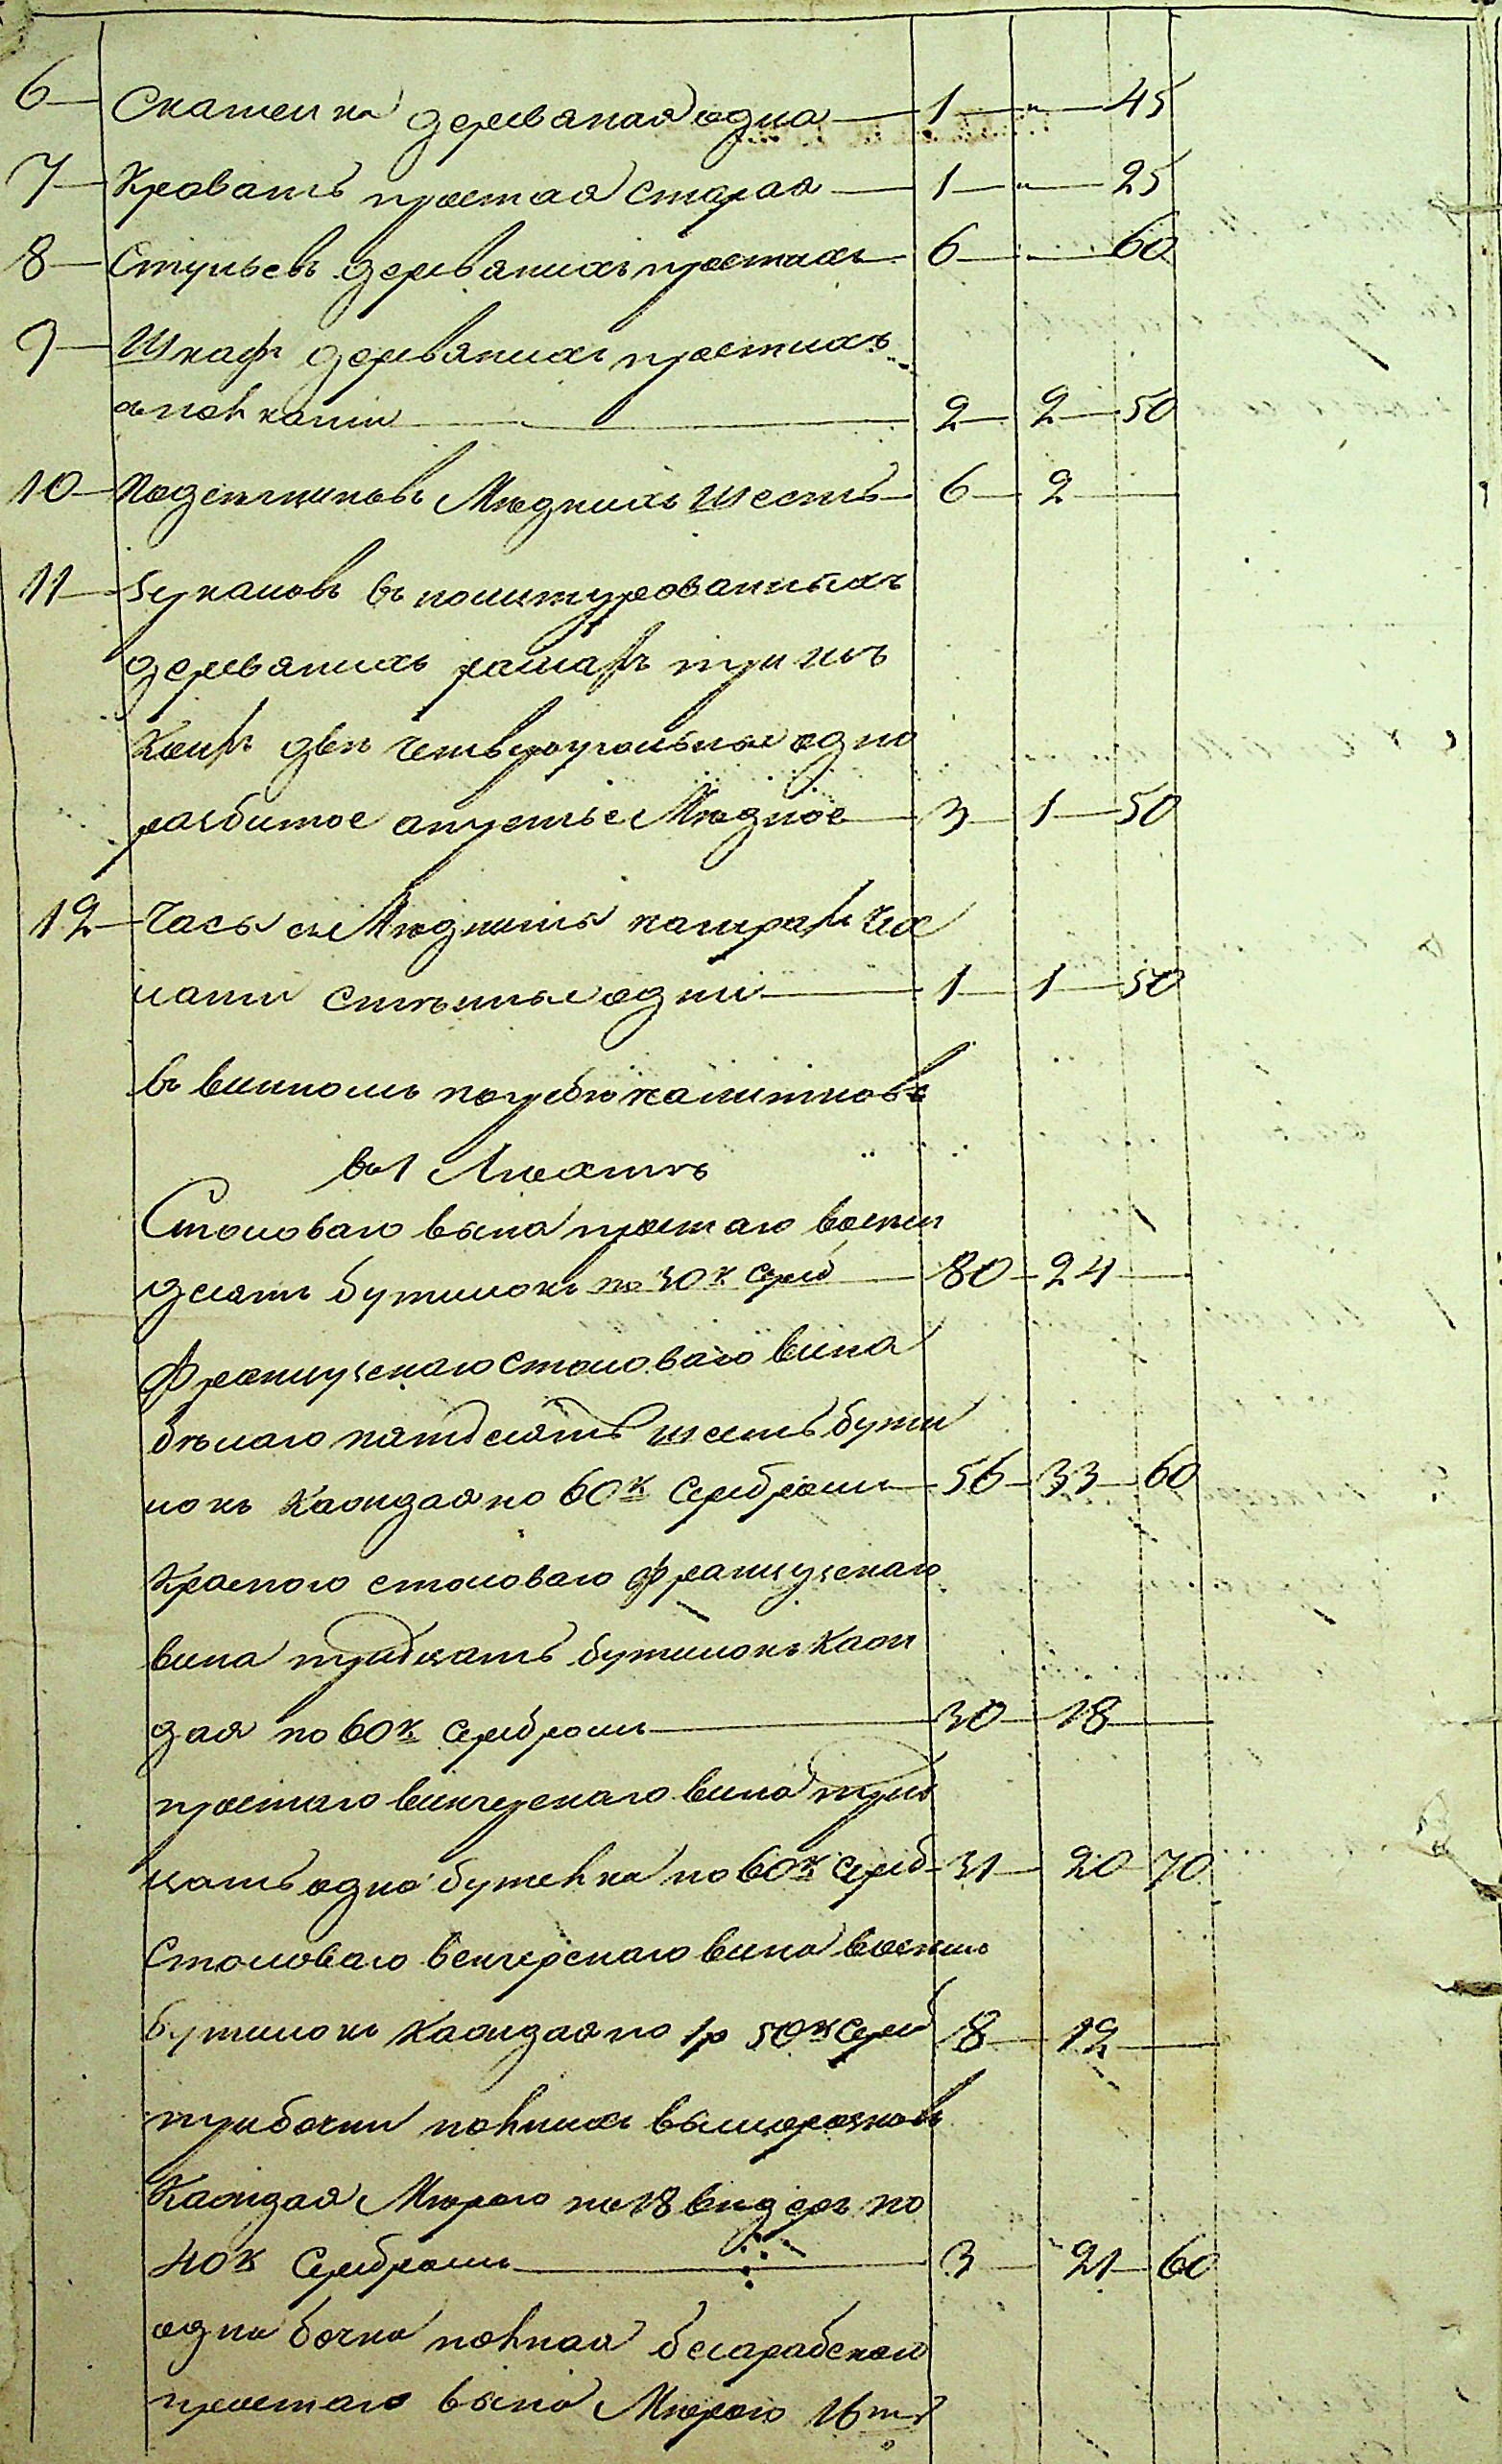 6 — Скамейка деревяная одна — 1 — " — 45
7 — Кровать простая старая — 1 — " — 25
8 — Стульевъ деревяныхъ простыхъ — 6 — " — 60
9 — Шкафъ деревяныхъ простыхъ
2 — 2 — 50
10 — Подсвѣчниковъ Мѣдныхъ шесть — 6 — 2 —
11 — Зукаловъ въ политурованныхъ
деревяныхъ рамахъ три изъ
коихъ двѣ четвероугольные одно
разбитое а третье Мѣдное — 3 — 1 — 50
12 — Часы съ Мѣдными
стѣнные одни — 1 — 1 — 50
въ винномъ погребѣ напитковъ
въ 1
Столоваго вына простаго восем
десятъ бутылокъ по 30 к сереб — 80 — 24 —
Французскаго столоваго вина
бѣлаго пятдесятъ шесть буты
локъ каждая по 60 к серебромъ — 56 — 33 — 60
Красного столоваго французскаго
вина тридцать бутылокъ каж
дая по 60 к серебромъ — 30 — 18 —
простаго венгерскаго вина трид
цать одна бутелка по 60 к сереб — 31 — 20 70
Столоваго венгерскаго вина восемь
бутылокъ каждая по 1 р 50 к сереб — 8 — 12 —
три бочки полныхъ
Каждая Мѣрою по 18 ведеръ по
40 к Серебромъ — 3 — 21 — 60
одна бочка полная бесарабскаго
простаго вына Мѣрою 16 ть